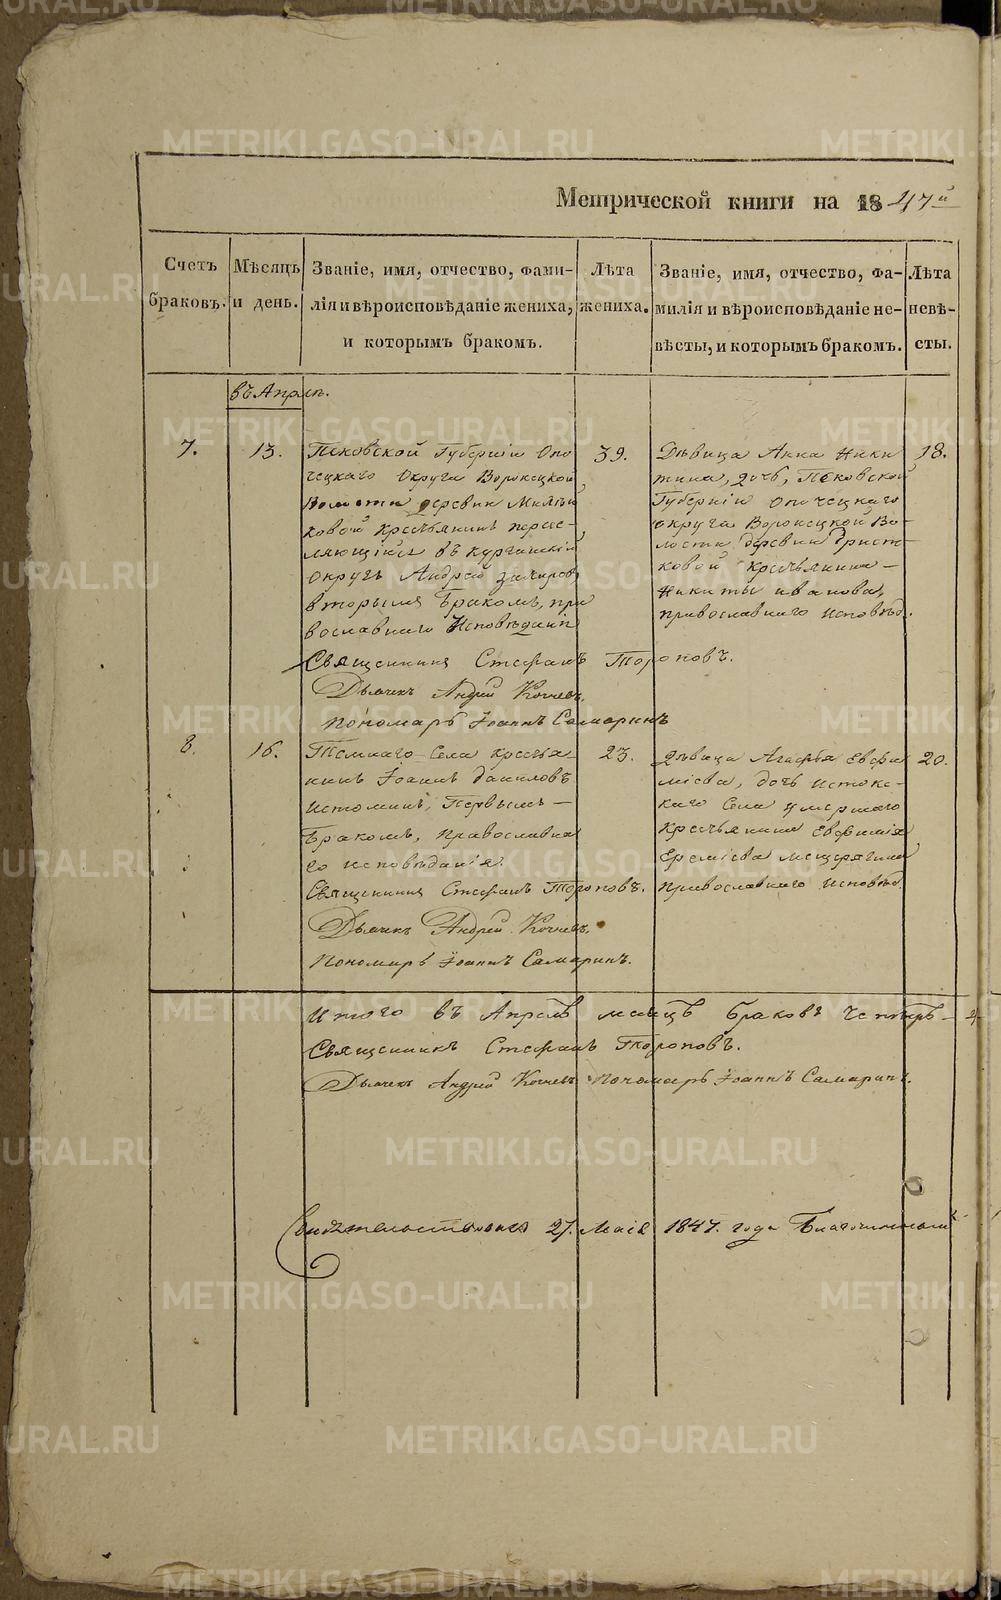 Метрической книги на 1847й
Счетъ браковъ.
Мѣсяцъ и день.
Званіе, имя, отчество, фами-
лія и вѣроисповѣданіе жениха,
и которымъ бракомъ.
Лѣта жениха.
Званіе, имя, отчество, фа-
милія и вѣроисповѣданіе не-
вѣсты, и которымъ бракомъ.
Лѣта невѣ-
сты.
въ Апрел.
7.
13.
Псковской Губерніи Опо
чецкаго Округа Воронецкой
Волости деревни
ковой Крестьянинъ пересе-
ляющійся въ Курганскій
округъ Андрей Захаровъ
вторымъ Бракомъ, пра
вославнаго Исповѣданія
39.
Дѣвица Анна Ники
тина, дочь, Псковской
Губерніи Опочецкаго
округа Воронецкой Во-
лости деревни
ковой Крестьянина
Никиты Иванова,
православнаго Исповѣд.
18.
Священникъ Стефанъ Тороповъ.
Дьячекъ Андрей Кочневъ.
Пономарь Іоаннъ Самаринъ
8.
16.
Села Крестья
нинъ Іоаннъ Даниловъ
Истоминъ, Первымъ —
Бракомъ, православна
го исповѣданія.
23.
Дѣвица Агафья Евфи
міева, дочь Истокс-
каго Села умершаго
Крестьянина Евфимія
Еремѣева Мещерягина
Православнаго Исповѣд.
20.
Священникъ Стефанъ Тороповъ.
Дьячекъ Андрей Кочневъ.
Пономарь Іоаннъ Самаринъ.
Итого въ Апрелѣ месяцѣ браковъ четыре — 4
Священникъ Стефанъ Тороповъ.
Дьячекъ Андрей Кочневъ Пономарь Іоаннъ Самаринъ.
27. Маія 1847. года Благочинный
METRIKI.GASO-URAL.RU